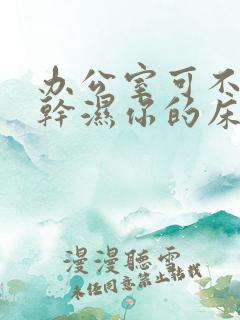 办公室可不
幹濕你的床
漫漫聽雲
未任同意禁止轉载